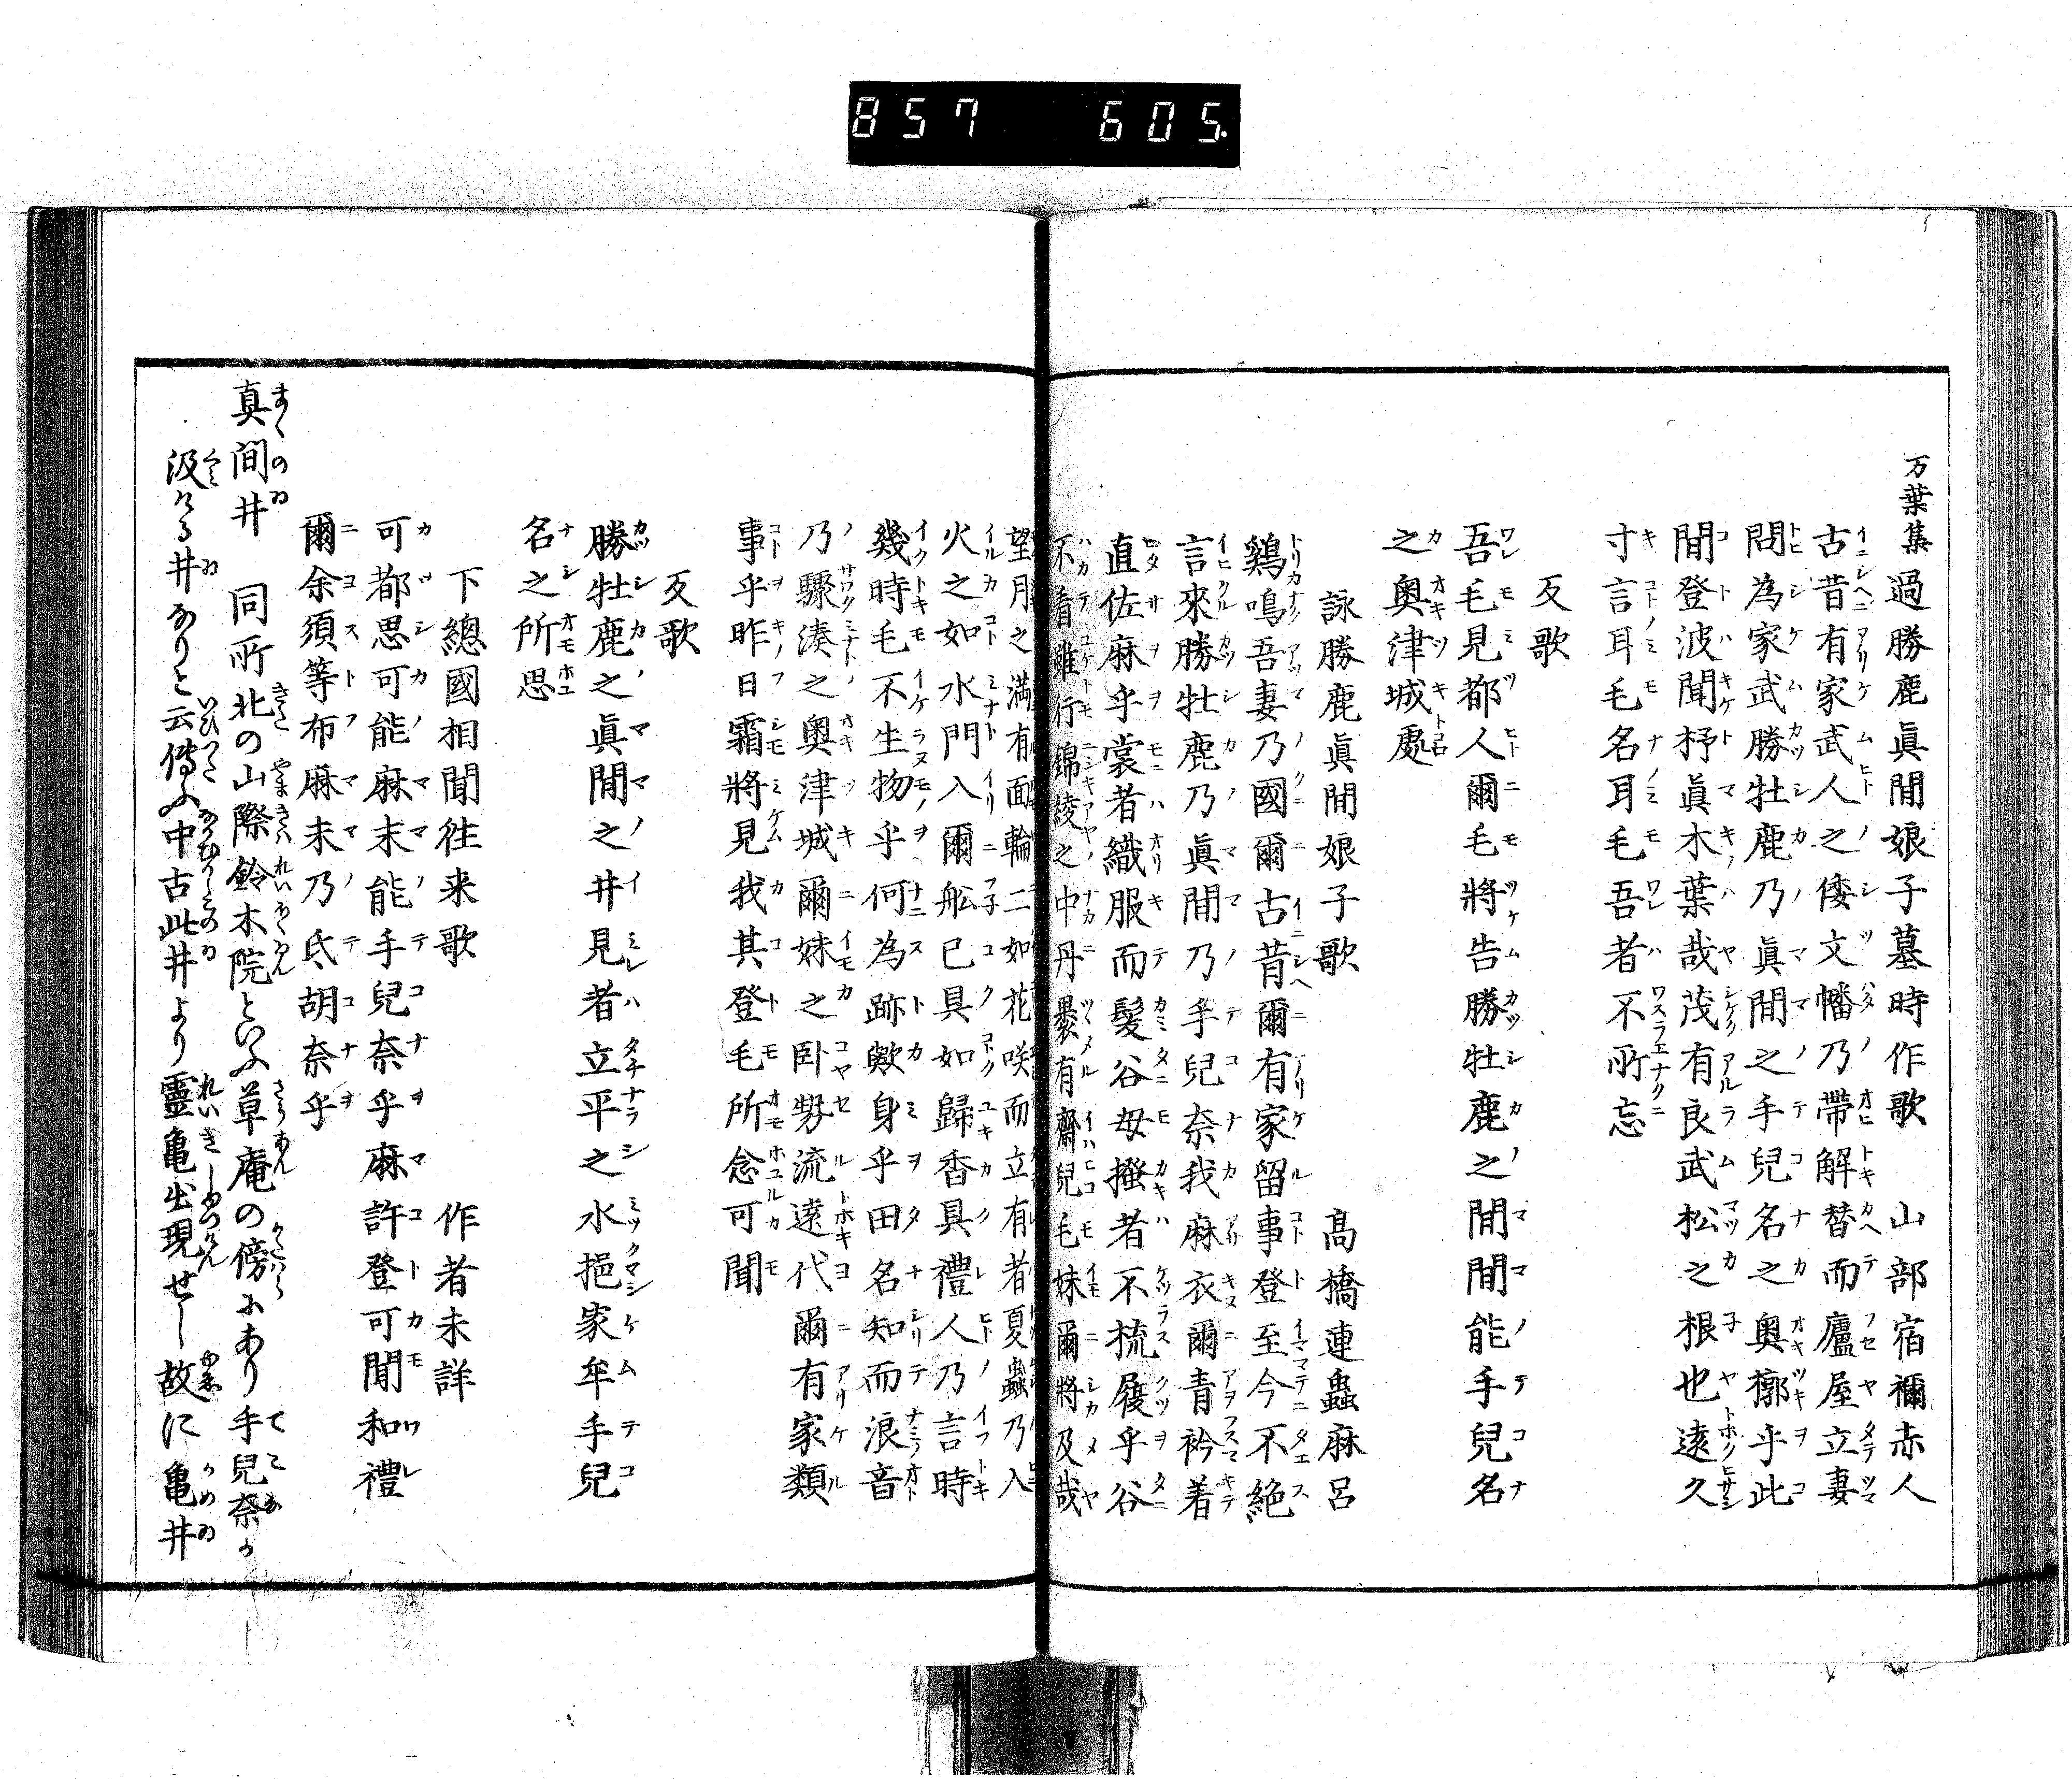 857 605.
万葉集 過勝鹿眞間娘子墓時作歌 山部宿禰赤人
古昔有家武人之倭文幡乃帶解替而廬屋立妻
問為家武勝牡鹿乃眞間之手兒名之奥槨乎此
間登波聞杼眞木葉哉茂有良武松之根也遠久
寸言耳毛名耳毛吾者不所忘
反歌
吾毛見都人爾毛將告勝牡鹿之間間能手兒名
之奥津城處
詠勝鹿眞間娘子歌 髙橋連蟲麻呂
鷄鳴吾妻乃國爾古昔爾有家留事登至今不絶
言來勝牡鹿乃眞間乃手兒奈我麻衣爾青衿着
直佐麻乎裳者織服而髮谷毋搔者不梳履乎谷
不看雖行錦綾之中丹褁有齋兒毛妹爾將及哉
望月之満有面輪二如花咲而立有者夏蟲乃入
火之如水門入爾舩己具如歸香具禮人乃言時
幾時毛不生物乎何為跡歟身乎田名知而浪音
乃驟湊之奥津城爾妹之卧勢流遠代爾有家類
事乎昨日霜將見我其登毛所念可聞
反歌
勝牡鹿之眞間之井見者立平之水挹家牟手兒
名之所思
下總國相聞徃来歌 作者未詳
可都思可能麻末能手兒奈乎麻許登可聞和禮
爾余須等布麻末乃氐胡奈乎
真間井 同所北の山際鈴木院といふ草庵の傍にあり手兒奈か
汲ける井なりと云傳ふ中古此井より靈亀出現せし故に亀井